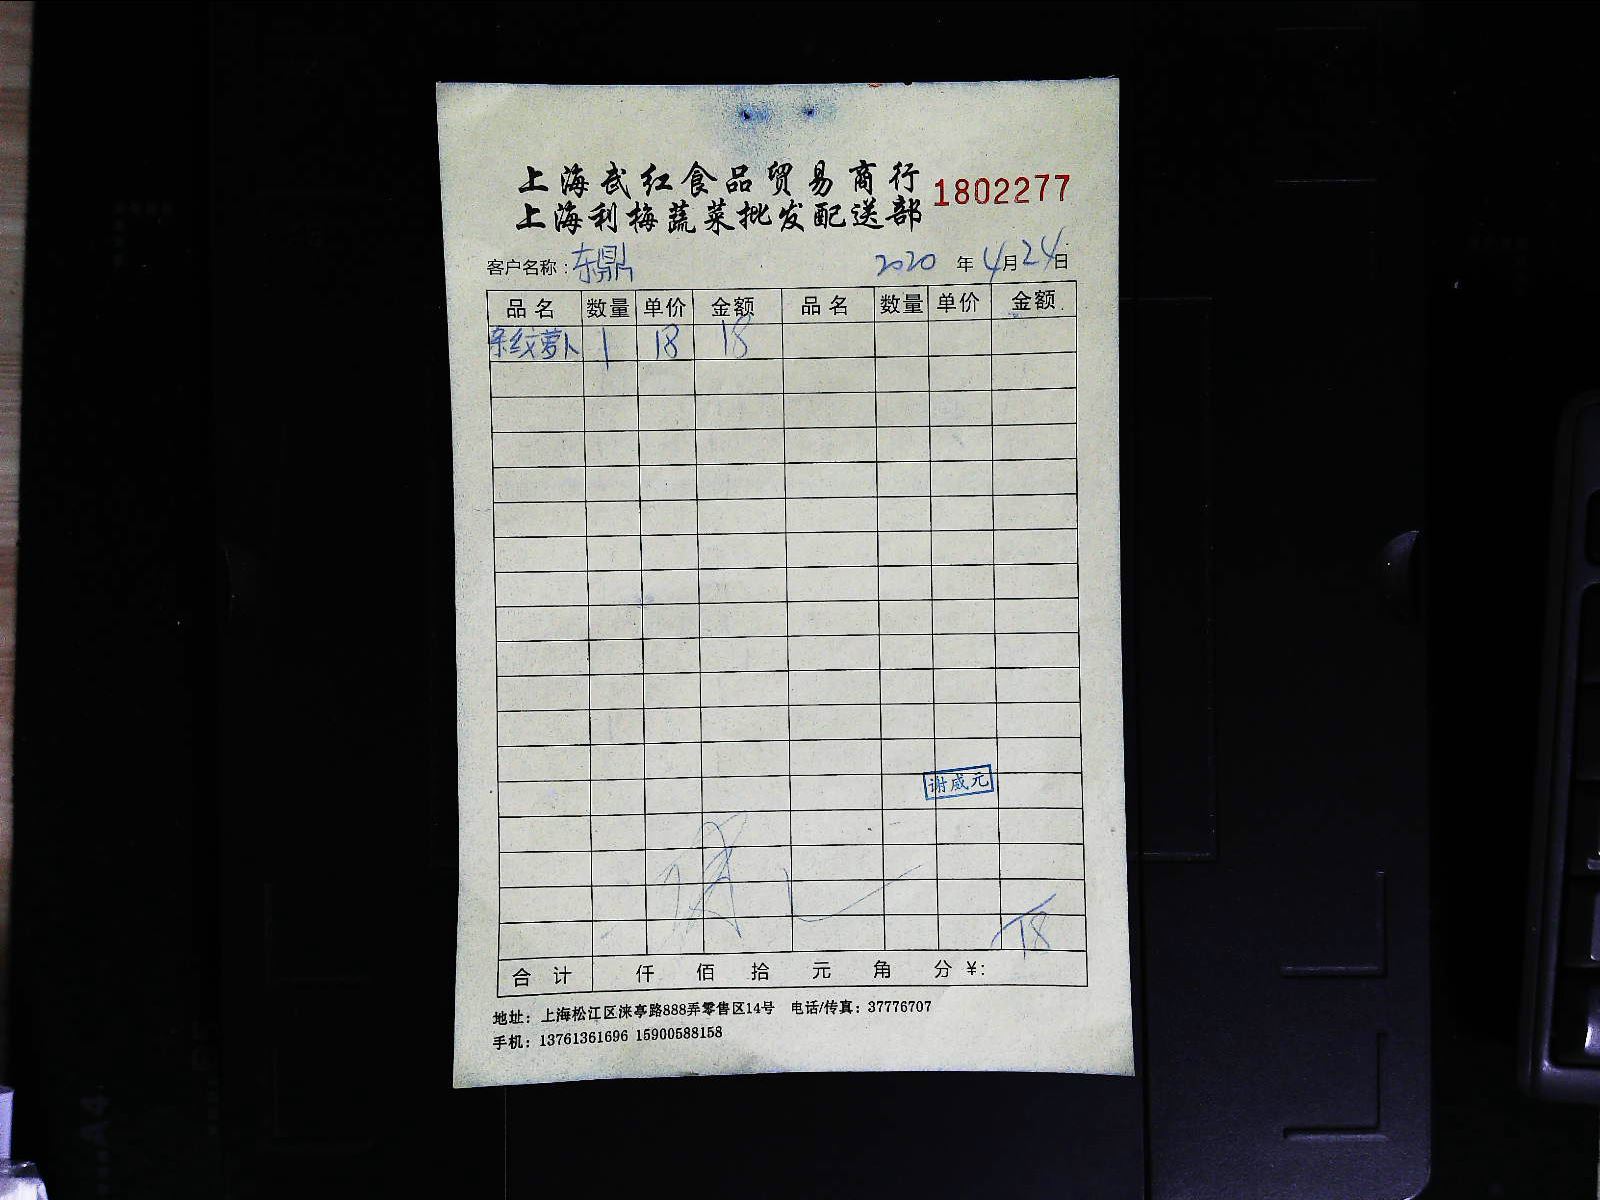 上海武红食品贸易商行
上海利梅蔬菜批发配送部
1802277
客户名称：东鼎 2020年4月24日
品名 数量 单价 金额 品名 数量 单价 金额
条纹萝卜 1 18 18
谢威元
18
合计 仟 佰 拾 元 角 分 ¥:
地址：上海松江区涞亭路888弄零售区14号 电话/传真：37776707
手机：13761361696 15900588158
A4